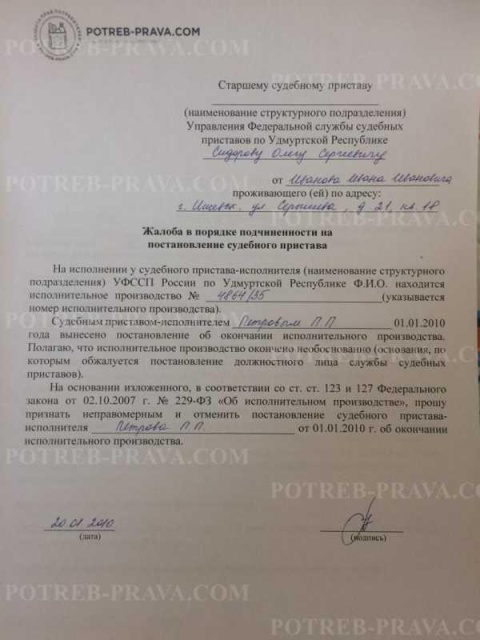 POTREB-PRAVA.COM
Старшему судебному приставу
(наименование структурного подразделения)
Управления Федеральной службы судебных
приставов по Удмуртской Республике
Сидорову Олегу Сергеевичу
от Иванова Ивана Ивановича
проживающего (ей) по адресу:
г. Ижевск, ул. Серышева, д 21, кв. 18
Жалоба в порядке подчиненности на
постановление судебного пристава
На исполнении у судебного пристава-исполнителя (наименование структурного
подразделения) УФССП России по Удмуртской Республике Ф.И.О. находится
исполнительное производство № 4864/35 (указывается
номер исполнительного производства).
Судебным приставом-исполнителем Петровым П.П 01.01.2010
года вынесено постановление об окончании исполнительного производства.
Полагаю, что исполнительное производство окончено необоснованно (основания, по
которым обжалуется постановление должностного лица службы судебных
приставов).
На основании изложенного, в соответствии со ст. ст. 123 и 127 Федерального
закона от 02.10.2007 г. № 229-ФЗ «Об исполнительном производстве», прошу
признать неправомерным и отменить постановление судебного пристава-
исполнителя Петрова П.П. от 01.01.2010 г. об окончании
исполнительного производства.
20.01.2010
(дата) (подпись)